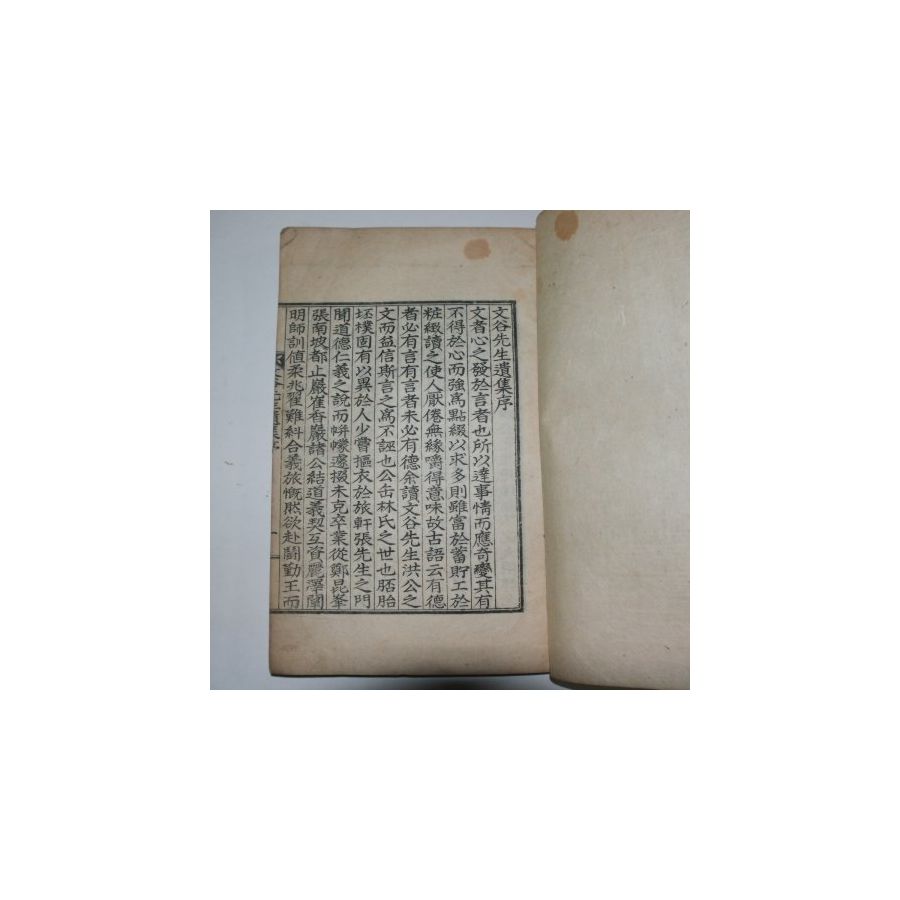 文谷先生遺集序
文者心之發於言者也所以達事情而應奇變其有
不得於心而強爲點綴以求多則雖富於蓄貯工於
粧緻讀之使人厭倦無緣嚼得意味故古語云有德
者必有言有言者未必有德余讀文谷先生洪公之
文而益信斯言之爲不誣也公缶林氏之世也胚胎
坯樸固有以異於人少嘗摳衣於旅軒張先生之門
聞道德仁義之說而帡幪邊掇未克卒業從鄭昆峯
張南坡都止巖崔香巖諸公結道義契互資麗澤闡
明師訓値柔兆翟難糾合義旅慨然欲赴鬪勤王而